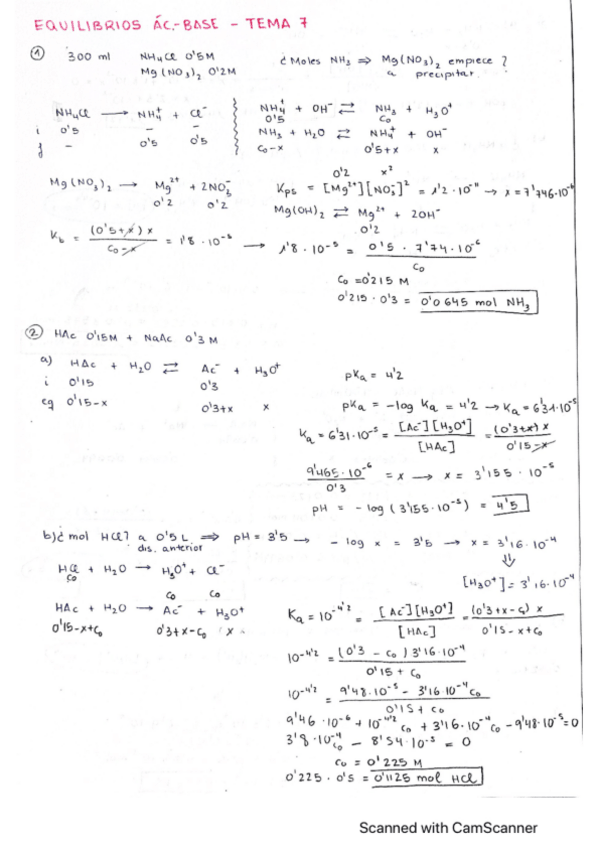 EQUILIBRIOS ÁC.-BASE - TEMA 7
① 300 ml NH₄Cl 0'5M ¿Moles NH₃ ⇒ Mg(NO₃)₂ empiece?
Mg(NO₃)₂ 0'2M a precipitar.
NH₄Cl → NH₄⁺ + Cl⁻ NH₄⁺ + OH⁻ ⇄ NH₃ + H₃O⁺
0'5 C₀
i 0'5 - - NH₃ + H₂O ⇄ NH₄⁺ + OH⁻
f - 0'5 0'5 C₀-x 0'5+x x
0'2 x²
Mg(NO₃)₂ → Mg²⁺ + 2NO₃⁻ Kps = [Mg²⁺][NO₃⁻]² = 1'2·10⁻¹¹ → x = 7'746·10⁻⁶
0'2 0'2 Mg(OH)₂ ⇄ Mg²⁺ + 2OH⁻
0'2
K_b = (0'5+x)x / C₀-x = 1'8·10⁻⁵ → 1'8·10⁻⁵ = 0'5·7'74·10⁻⁶ / C₀
C₀ = 0'215 M
0'215·0'3 = 0'0645 mol NH₃
② HAc 0'15M + NaAc 0'3M
a) HAc + H₂O ⇄ Ac⁻ + H₃O⁺ pKa = 4'2
i 0'15 0'3
eq 0'15-x 0'3+x x pKa = -log Ka = 4'2 → Ka = 6'31·10⁻⁵
Ka = 6'31·10⁻⁵ = [Ac⁻][H₃O⁺] / [HAc] = (0'3+x)x / 0'15-x
9'465·10⁻⁶ / 0'3 = x → x = 3'155·10⁻⁵
pH = -log(3'155·10⁻⁵) = 4'5
b) ¿mol HCl? a 0'5L ⇒ pH = 3'5 → -log x = 3'5 → x = 3'16·10⁻⁴
dis. anterior ⇓
HCl + H₂O → H₃O⁺ + Cl⁻ [H₃O⁺] = 3'16·10⁻⁴
C₀ C₀ C₀
HAc + H₂O → Ac⁻ + H₃O⁺ Ka = 10⁻⁴'² = [Ac⁻][H₃O⁺] / [HAc] = (0'3+x-C₀)x / 0'15-x+C₀
0'15-x+C₀ 0'3+x-C₀ x
10⁻⁴'² = (0'3-C₀)3'16·10⁻⁴ / 0'15+C₀
10⁻⁴'² = 9'48·10⁻⁵ - 3'16·10⁻⁴C₀ / 0'15+C₀
9'46·10⁻⁶ + 10⁻⁴'² C₀ + 3'16·10⁻⁴C₀ - 9'48·10⁻⁵ = 0
3'8·10⁻⁴C₀ - 8'54·10⁻⁵ = 0
C₀ = 0'225 M
0'225·0'5 = 0'1125 mol HCl
Scanned with CamScanner